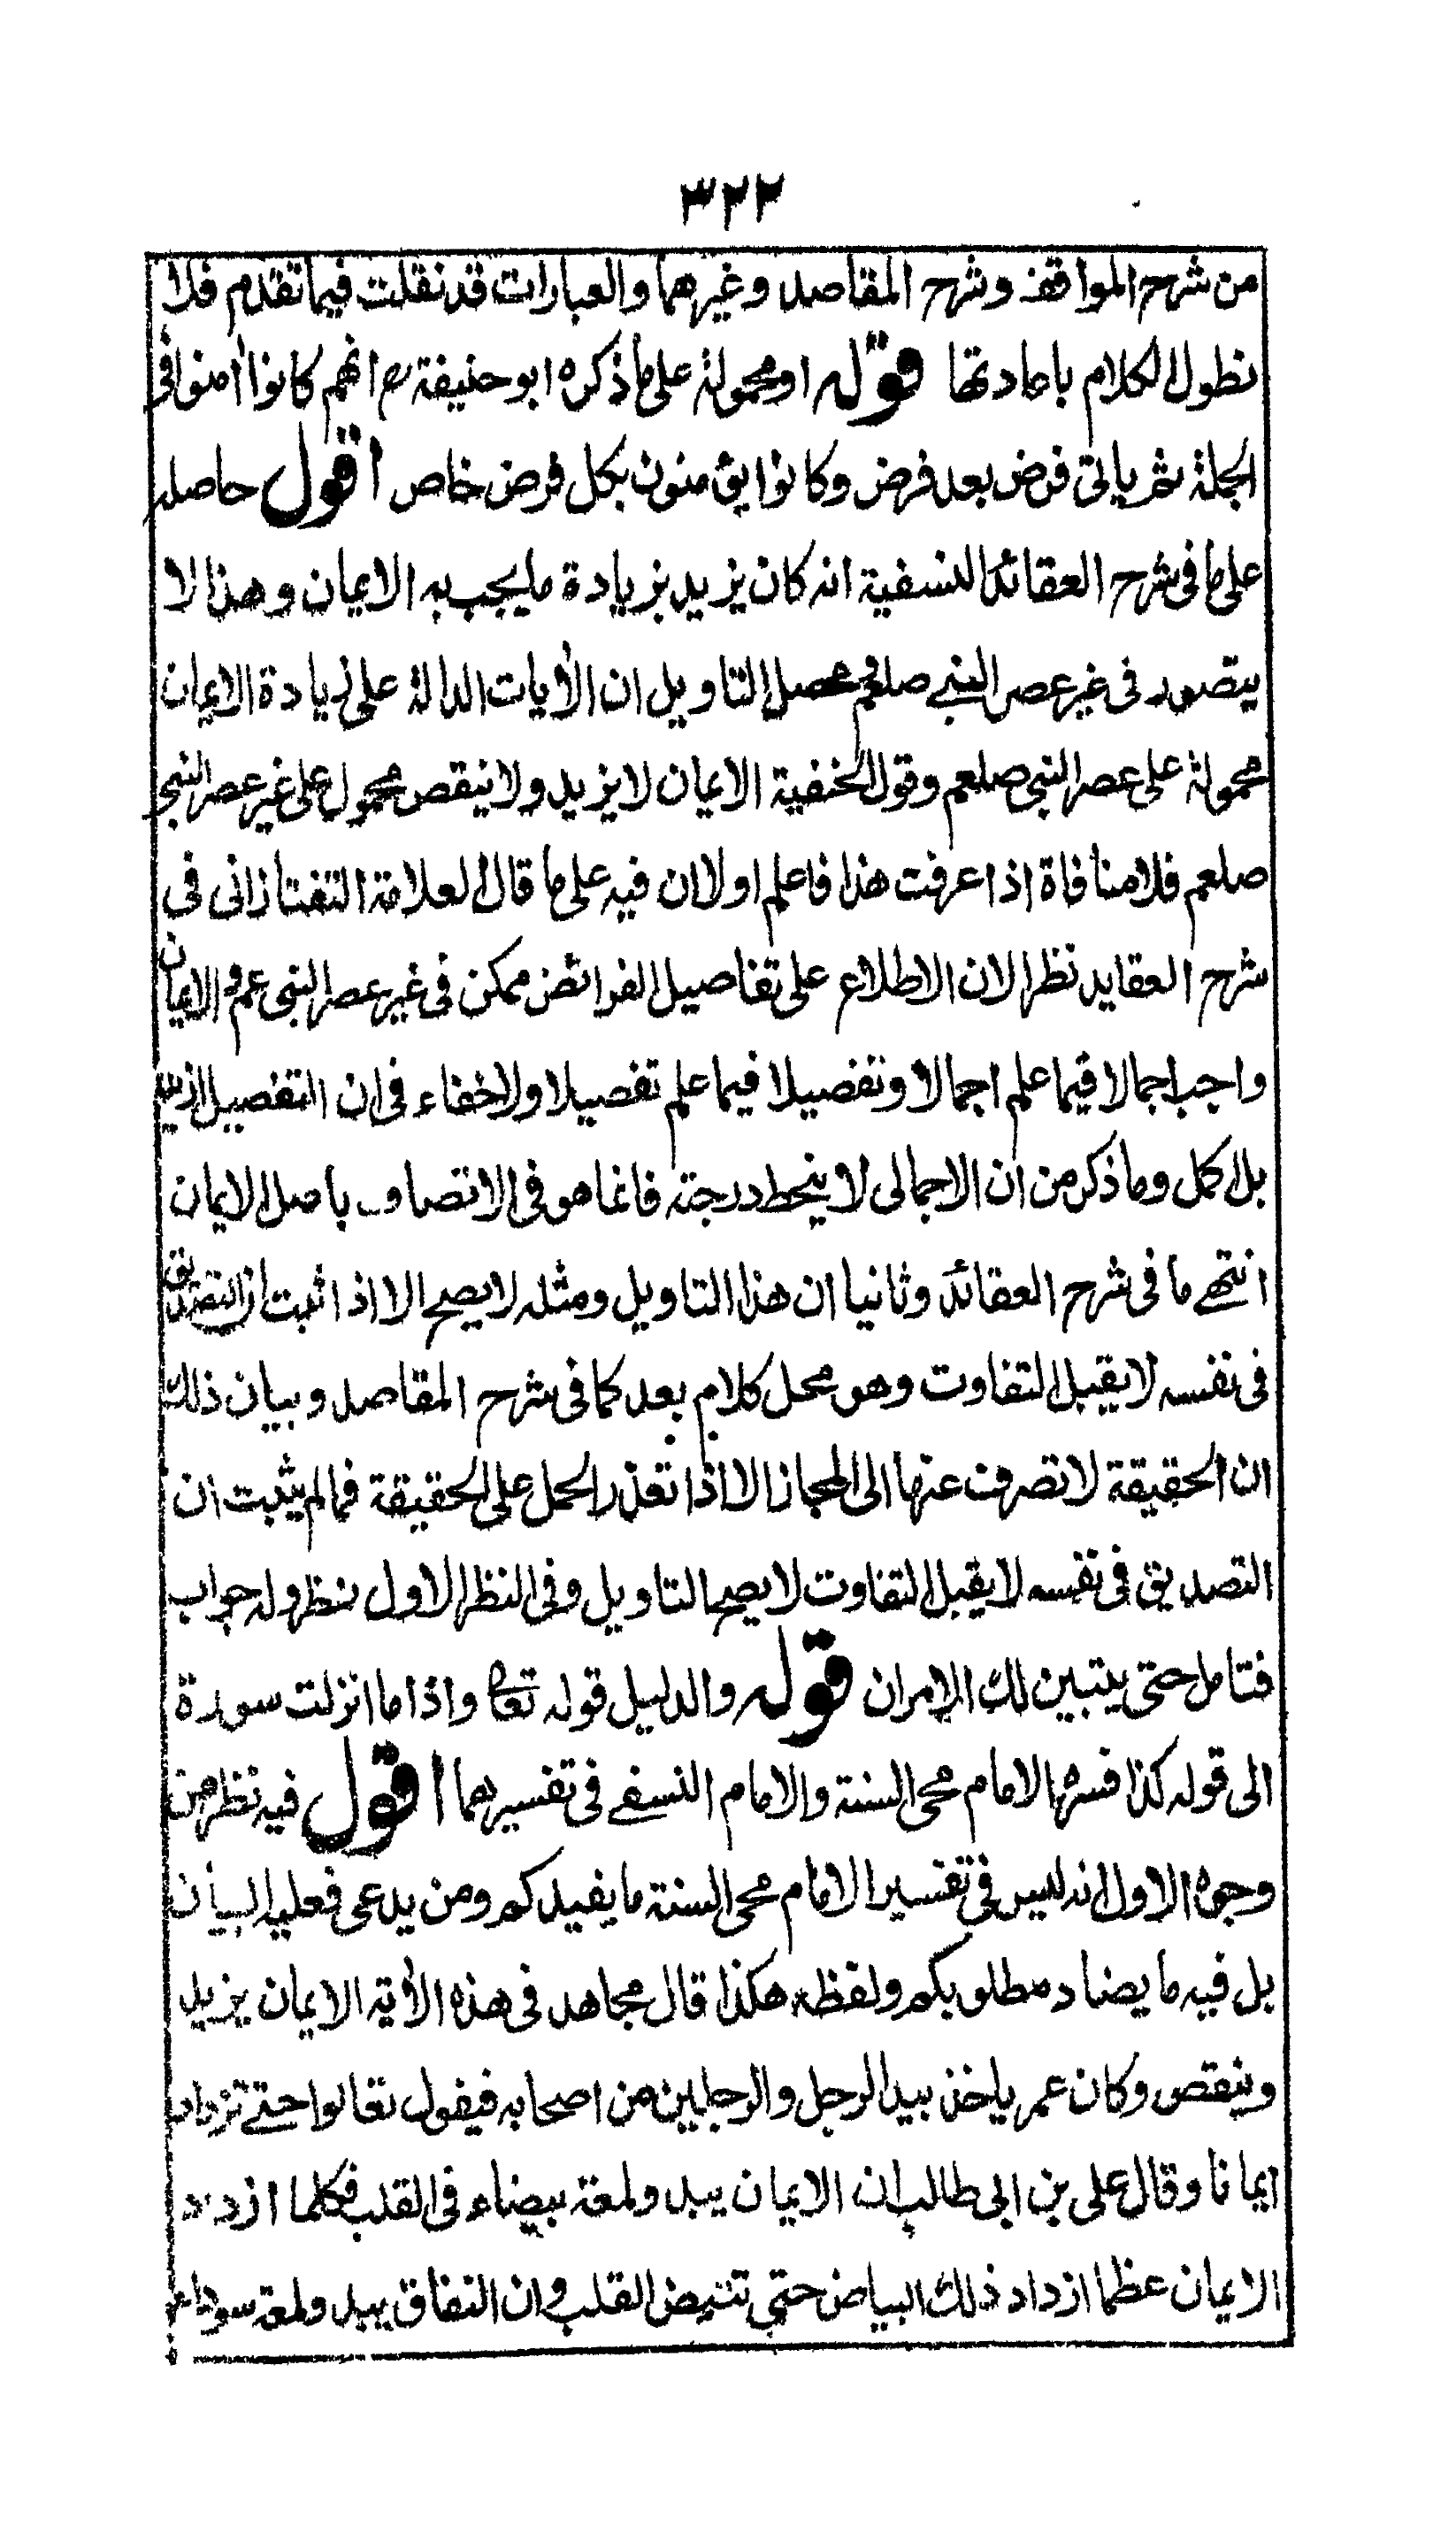 ٣٢٢
من شرح المواقف وشرح المقاصد وغيرهما والعبارات قد نقلت فيما تقدم فلا
نطول الكلام باعادتها قوله او محمولة على ما ذكره ابو حنيفة رح انهم كانوا اٰمنوا فى
الجملة ثم ياتى فرض بعد فرض وكانوا يؤمنون بكل فرض خاص اقول حاصله
على ما فى شرح العقائد النسفية انه كان يزيد بزيادة ما يجب به الايمان وهذا لا
يتصور فى غير عصر النبى صلعم فحصل التاويل ان الاٰيات الدالة على زيادة الايمان
محمولة على عصر النبى صلعم وقول الحنفية الايمان لا يزيد ولا ينقص محمول على غير عصر النبى
صلعم فلا منافاة اذا عرفت هذا فاعلم اولا ان فيه على ما قال العلامة التفتازانى فى
شرح العقايد نظرا لان الاطلاع على تفاصيل الفرائض ممكن فى غير عصر النبى عم والايمان
واجب اجمالا فيما علم اجمالا وتفصيلا فيما علم تفصيلا ولا خفاء فى ان التفصيل ازيد
بل اكمل وما ذكر من ان الاجمالى لا ينحط درجته فانما هو فى الاتصاف باصل الايمان
انتهى ما فى شرح العقائد وثانيا ان هذا التاويل ومثله لا يصح الا اذا ثبت ان التصديق
فى نفسه لا يقبل التفاوت وهو محل كلام بعد كما فى شرح المقاصد وبيان ذلك
ان الحقيقة لا تصرف عنها الى المجاز الا اذا تعذر الحمل على الحقيقة فما لم يثبت ان
التصديق فى نفسه لا يقبل التفاوت لا يصح التاويل وفى النظر الاول نظر وله جواب
فتامل حتى يتبين لك الامران قوله والدليل قوله تعالى واذا ما انزلت سورة
الى قوله كذا فسرها الامام محى السنة والامام النسفى فى تفسيرهما اقول فيه نظر من
وجوه الاول انه ليس فى تفسير الامام محى السنة ما يفيدكم ومن يدعى فعليه البيان
بل فيه ما يضاد مطلوبكم ولفظه هكذا قال مجاهد فى هذه الاٰية الايمان يزيد
وينقص وكان عمر ياخذ بيد الرجل والرجلين من اصحابه فيقول تعالوا حتى نزداد
ايمانا وقال على بن ابى طالب ان الايمان يبدو لمعة بيضاء فى القلب فكلما ازداد
الايمان عظما ازداد ذلك البياض حتى تبيض القلب وان النفاق يبدو لمعة سوداء